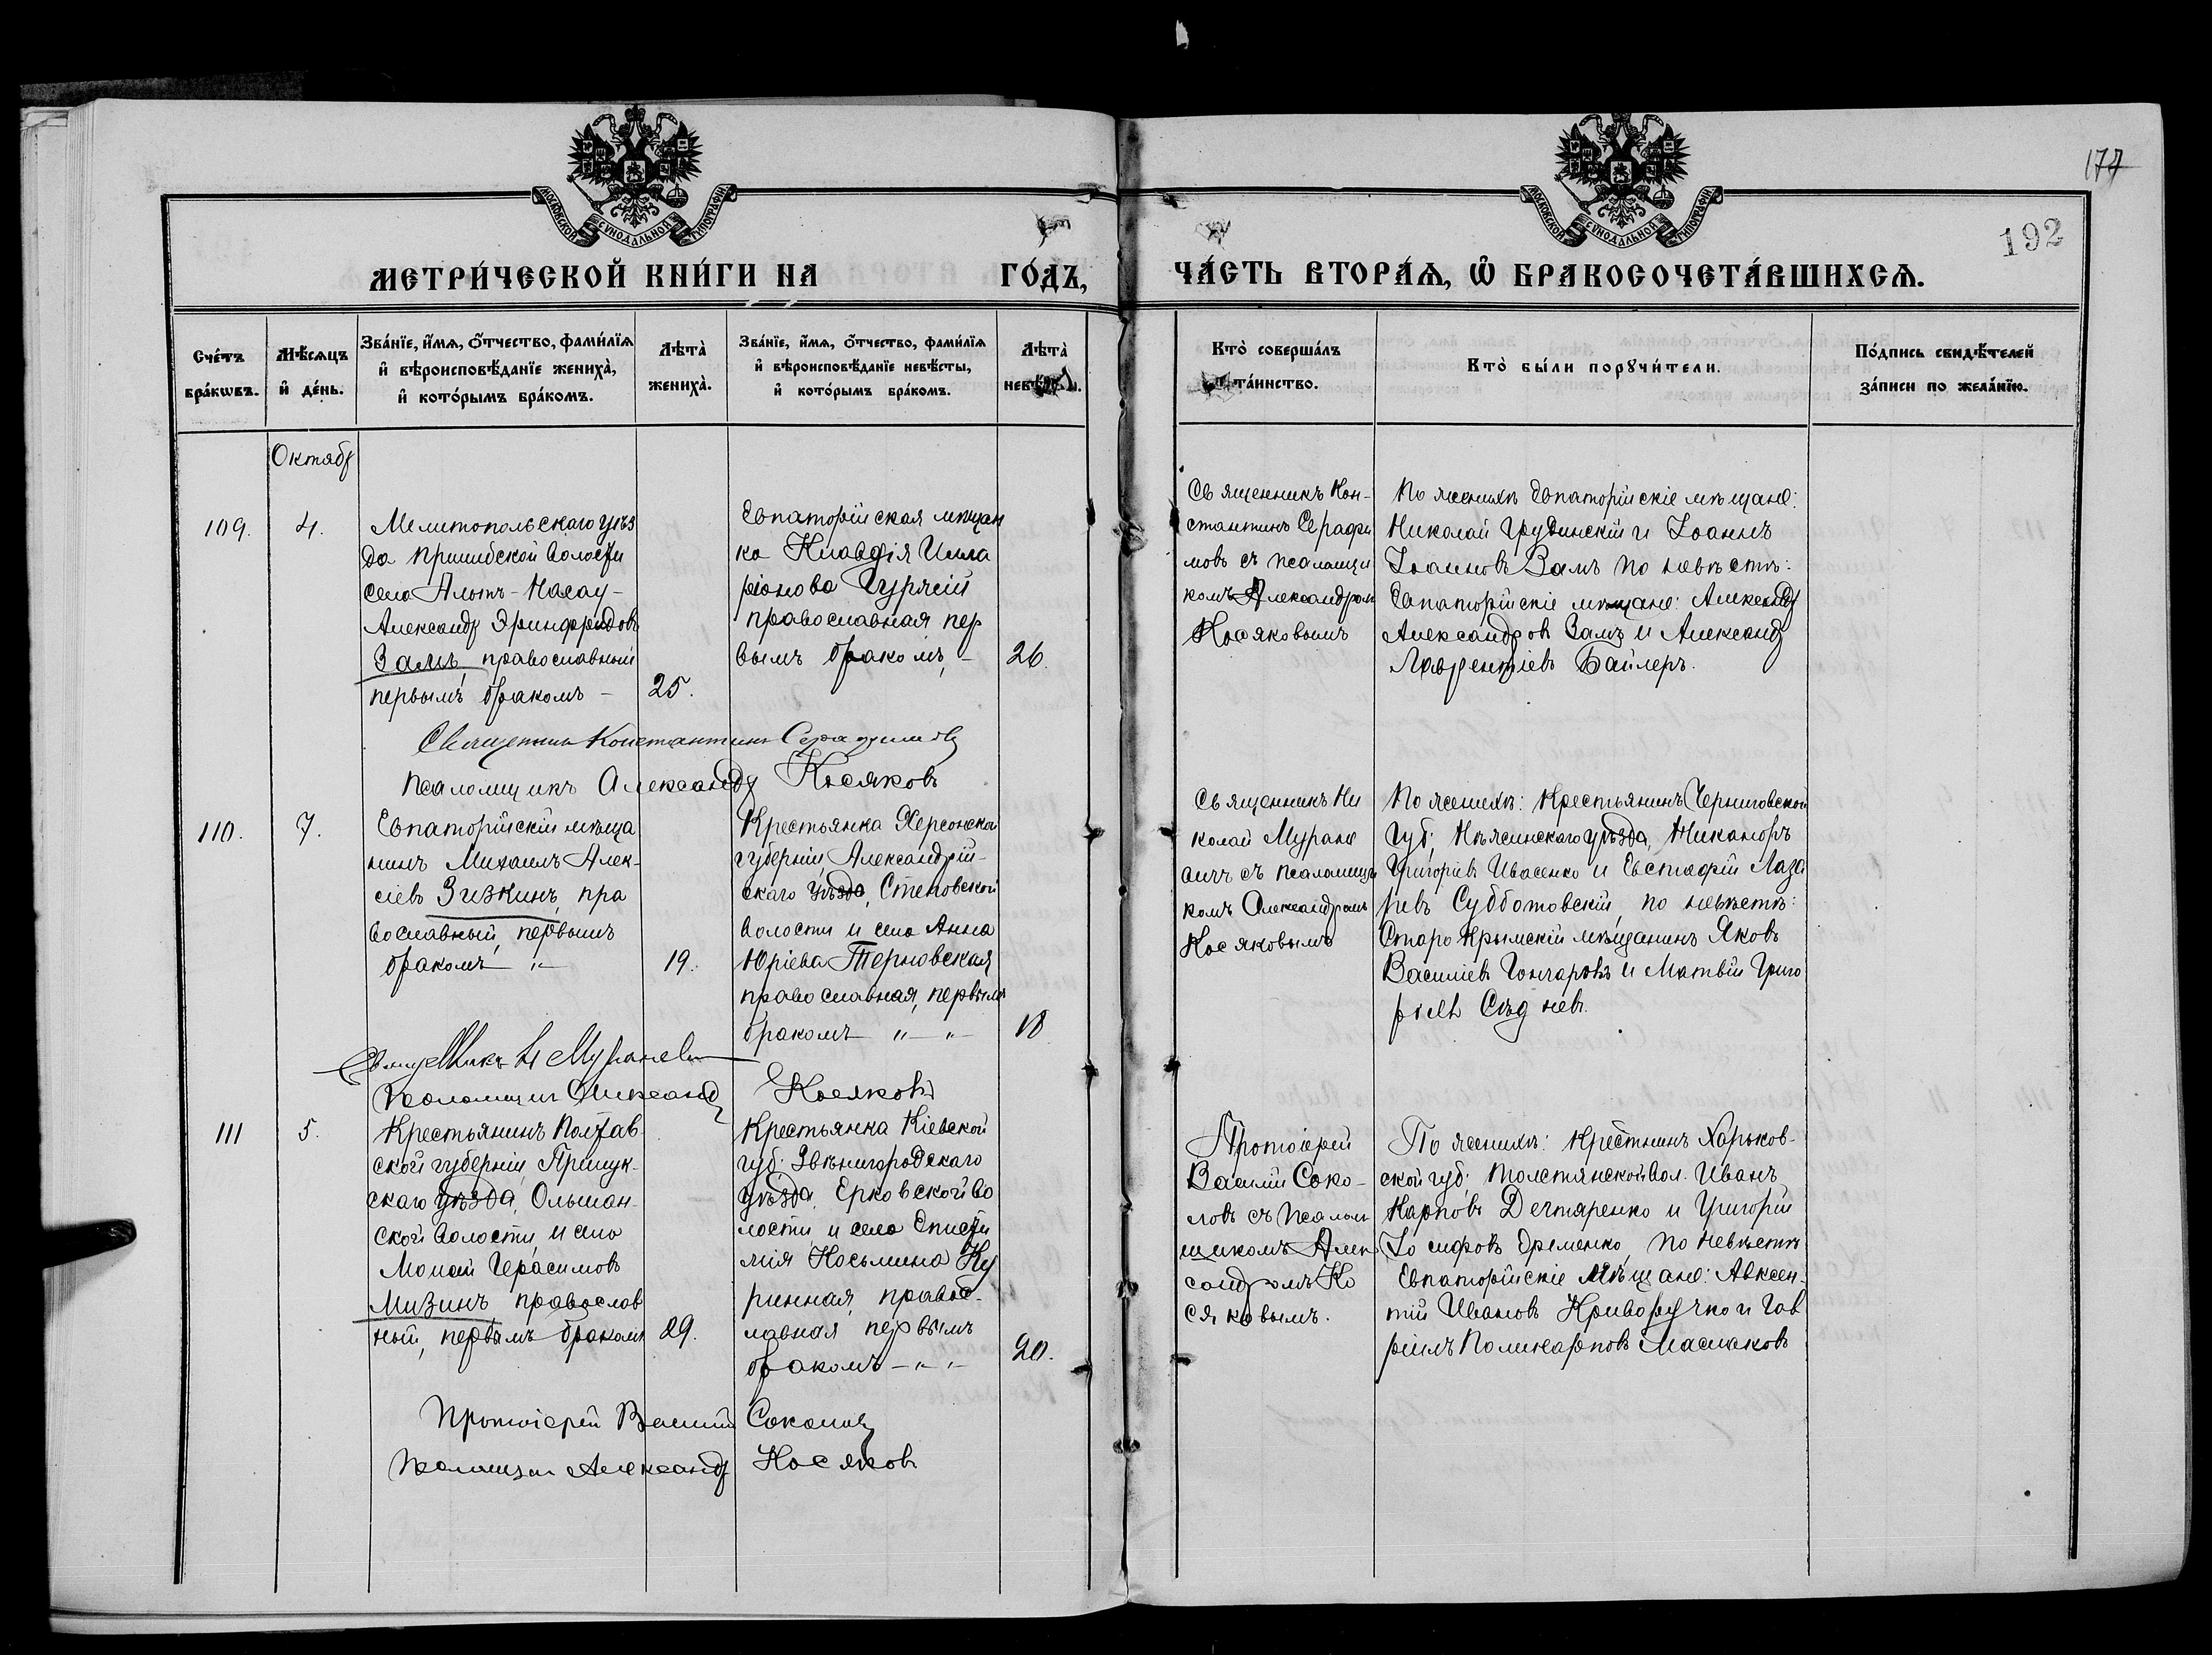 МОСКОВСКОЙ СѴНОДАЛЬНОЙ ТИПОГРАФІИ
МОСКОВСКОЙ СѴНОДАЛЬНОЙ ТИПОГРАФІИ
177
192
МЕТРИ́ЧЕСКОЙ КНИ́ГИ НА ГО́ДЪ,
ЧА́СТЬ ВТОРА́Ѧ, Ѽ БРАКОСОЧЕТА́ВШИХСѦ.
Сче́тъ
бра́кѡвъ.
Мѣ́сѧцъ
и҆ де́нь.
Зва́нїе, и҆́мѧ, ѻ҆́тчество, фами́лїѧ
и҆ вѣроисповѣ́данїе жениха̀,
и҆ кото́рымъ бра́комъ.
Лѣта̀
жениха̀.
Зва́нїе, и҆́мѧ, ѻ҆́тчество, фами́лїѧ
и҆ вѣроисповѣ́данїе невѣ́сты,
и҆ кото́рымъ бра́комъ.
Лѣта̀
невѣ́сты.
Кто̀ соверша́лъ
та́инство.
Кто̀ бы́ли порꙋчи́тели.
По́дпись свидѣ́телей
за́писи по жела́нїю.
Октябр
109.
4.
Мелитопольскаго уѣз
да Пришибской волости
села Альтъ-Насау-
Александръ Эринфридовъ
Замъ, православный
первымъ бракомъ -
25.
Евпаторійская мѣщан
ка Клавдія Илла
ріонова Гурчій
православная пер
вымъ бракомъ, -
26.
Священникъ Кон-
стантинъ Серафи
мовъ съ псаломщи
комъ Александром
Косяковымъ
По женихѣ Евпаторійскіе мѣщане:
Николай Грудинскій и Іоаннъ
Іоанновъ Замъ по невѣстѣ:
Евпаторійскіе мѣщане: Александръ
Александровъ Замъ и Александръ
Лаврентіевъ Байлеръ.
Священникъ Константинъ Серафимовъ
Псаломщикъ Александръ Косяковъ
110.
7.
Евпаторійскій мѣща
нинъ Михаилъ Алек-
сіевъ Зизкинъ, пра
вославный, первымъ
бракомъ "
19.
Крестьянка Херсонской
губерніи, Александрій-
скаго уѣзда, Степовской
волости и села Анна
Юріева Терновская
православная, первымъ
бракомъ " - "
18
Священникъ Ни
колай Муране
вичъ съ псаломщи
комъ Александромъ
Косяковымъ
По женихѣ: Крестьянинъ Черниговской
губ; Нѣжинскаго уѣзда, Никаноръ
Григоріевъ Ивасенко и Евстафій Лаза
ревъ Субботовскій, по невѣстѣ:
Старо Крымскій мѣщанинъ Яковъ
Василіевъ Гончаровъ и Матвій Григо
ріевъ Сѣдневъ.
Священникъ Н Муране
Псаломщикъ Александръ Косяковъ
111
5.
Крестьянинъ Полтав
ской губерніи, Прилук-
скаго уѣзда, Ольшан-
ской волости, и села
Герасимовъ
Мизинъ, православ
ный, первымъ бракомъ
29.
Крестьянка Кіевской
губ: Звѣнигородскаго
уѣзда, Ерковской во
лости и села Еписти
мія Косьмина Ку
ринная, правос-
лавная, первымъ
бракомъ - " -
20.
Протоіерей
Василій Соко-
ловъ съ псалом
щикомъ Алек
сандромъ Ко
сяковымъ.
По женихѣ: Крестьнинъ Харьков-
ской губ; Толстянской вол. Иванъ
Карповъ Дехтяренко и Григорій
Іосифовъ Еременко, по невѣстѣ
Евпаторійскіе мѣщане: Авксен-
тій Ивановъ Криворучко и Гав
ріилъ Поликарповъ Маслаковъ
Протоіерей Василій Соколовъ
Псаломщикъ Александръ Косяковъ